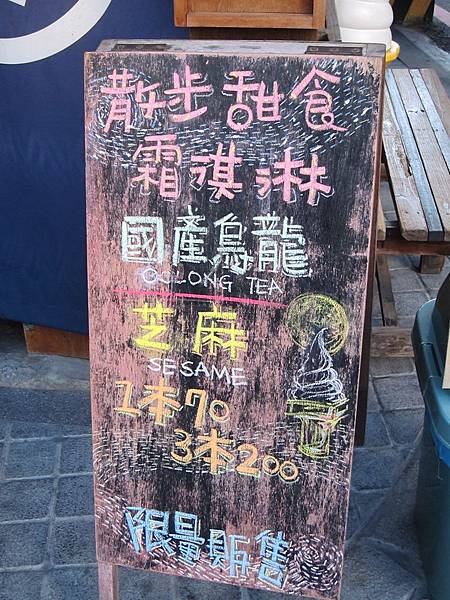 散步甜食
霜淇淋
國產烏龍
OOLONG TEA
芝麻
SESAME
1本70
3本200
限量販售